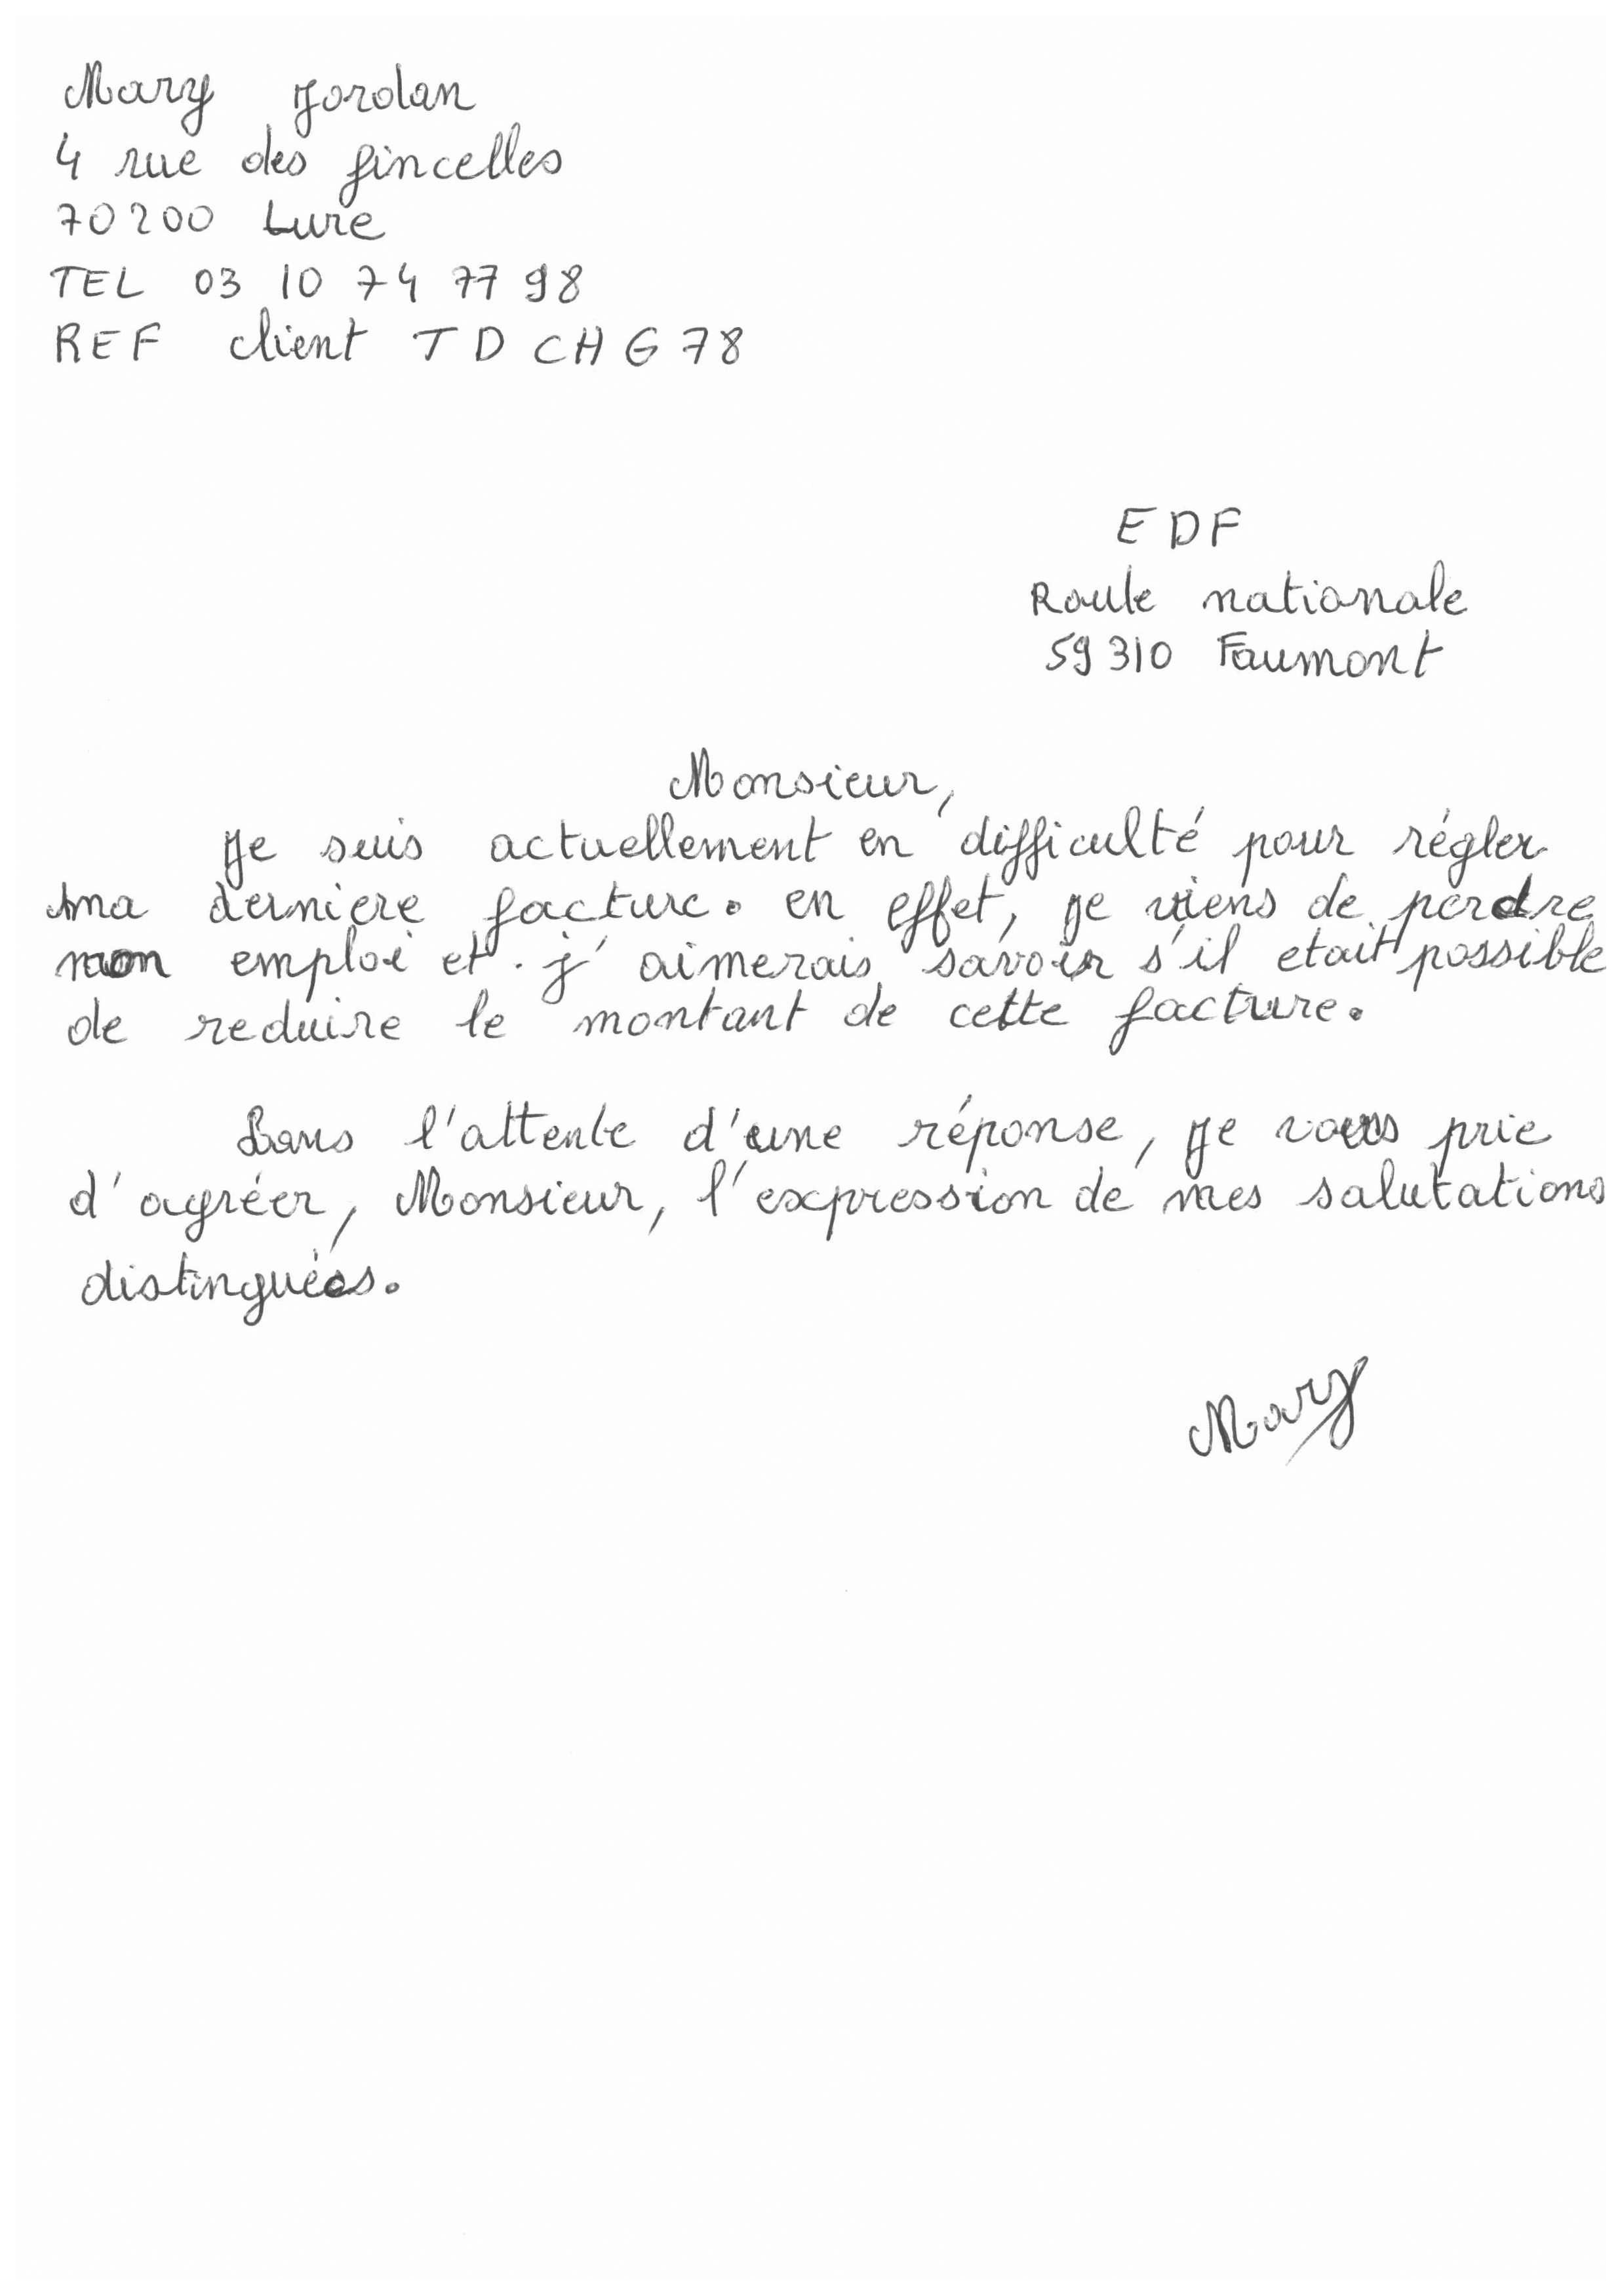 Mary Jordan
4 rue des fincelles
70200 Lure
TEL 03 10 74 77 98
REF client TDCHG78
EDF
Route nationale
59310 Faumont
Monsieur,
Je suis actuellement en difficulté pour régler
ma derniere facture. en effet, je viens de perdre
mon emploi et j'aimerais savoir s'il etait possible
de reduire le montant de cette facture.
Dans l'attente d'une réponse, je vous prie
d'agréer, Monsieur, l'expression de mes salutations
distinguées.
Mary